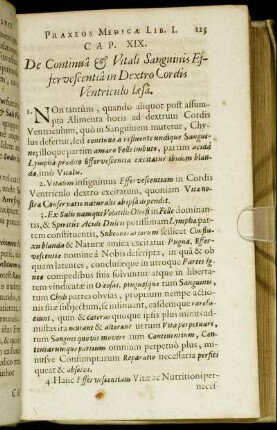 PRAXEOS MEDICÆ LIB. I. 225
CAP. XIX.
De Continuâ & Vitali Sanguinis Ef-
fervescentiâ in Dextro Cordis
Ventriculo læsâ.
1. NOn tantùm, quando aliquot post assum-
pta Alimenta horis ad dextrum Cordis
Ventriculum, quò in Sanguinem mutetur, Chy-
lus defertur, sed continuò ac refluente undique Sangui-
ne; illoque partim amaro Felle imbuto, partim acidâ
Lymphâ prædito Effervescentia excitatur ibidem blan-
da, imò Vitalis.
2. Vitalem insignimus Effervescentiam in Cordis
Ventriculo dextro excitatam, quoniam Vitæ no-
stræ Conservatio naturalis absque ipsâ deperit.
3. Ex Salis namque Volatilis Oleosi in Felle dominan-
tis, & Spiritûs Acidi Dulcis potissimam Lymphæ par-
tem constituentis, Subsecuturum scilicet Conflu-
xu blanda & Naturæ amica excitatur Pugna, Effer-
vescentiæ nomine à Nobis descripta, in quâ & ob
quam latentes, conclusæque in utroque Partes Igneæ
compedibus suis solvuntur atque in liberta-
tem vindicatæ in Oleosas, pinguesque tum Sanguinis,
tum Chyli partes obvias, proprium nempe actio-
nis suæ subjectum, se insinuant, easdemque rarefa-
ciunt, quin & cæteras quoque ipsis plus minus ad-
mistas ita mutant & alterant ut tum Vita perpetuari,
tum Sanguis quovis movere tum Continentium, tum
Contentarumque partium omnium perpetuò plus, mi-
nusve Consumptarum Reparatio necessaria perfici
queat & absolvi.
4. Hanc Effervescentiam Vitæ ac Nutritioni per-
neces-